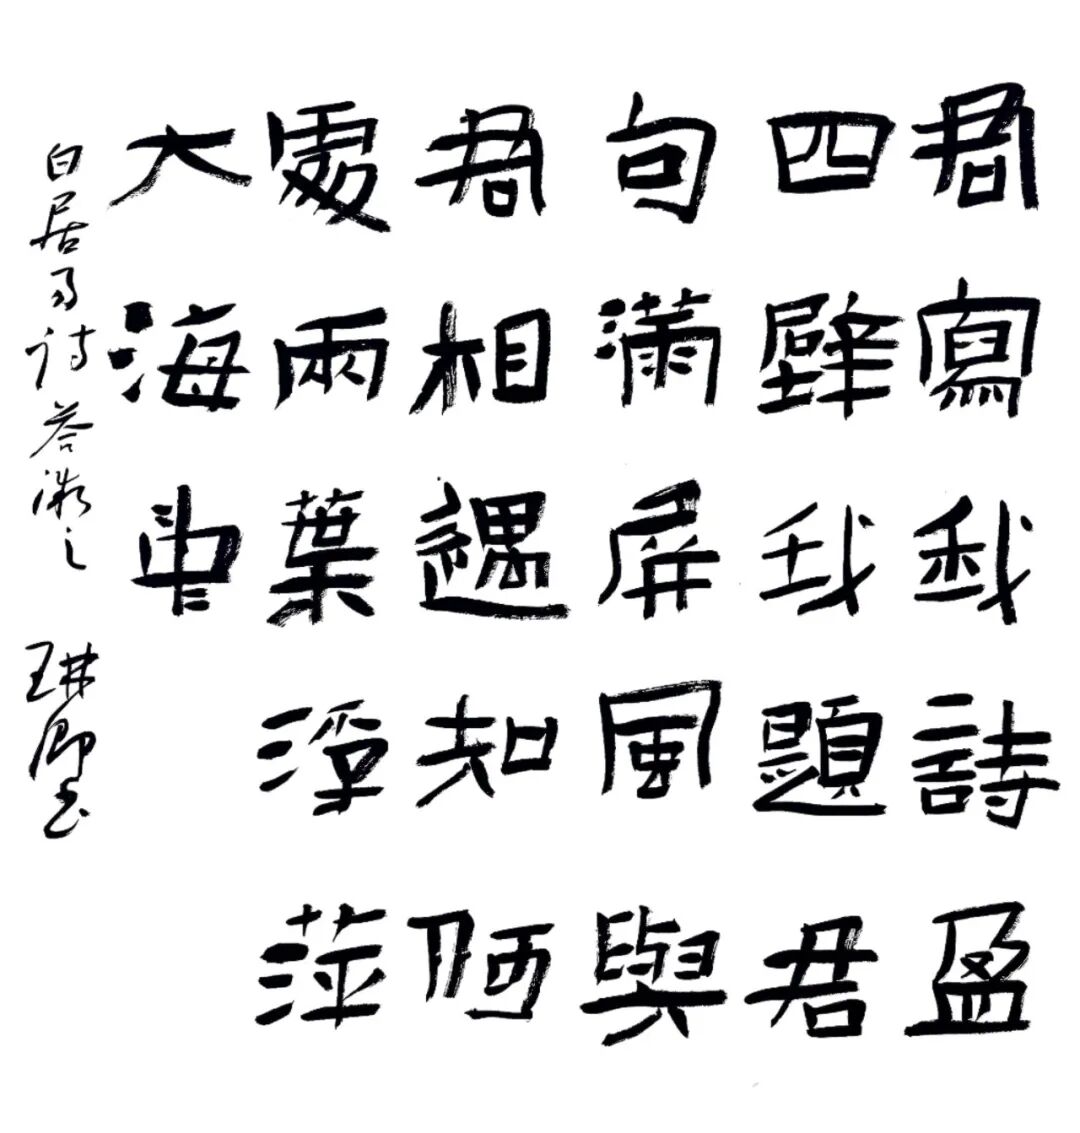 君寫我詩盈
四壁我題君
句滿屏風與
君相遇知陋
處兩葉浮萍
大海中
白居易诗答微之 琳卿书